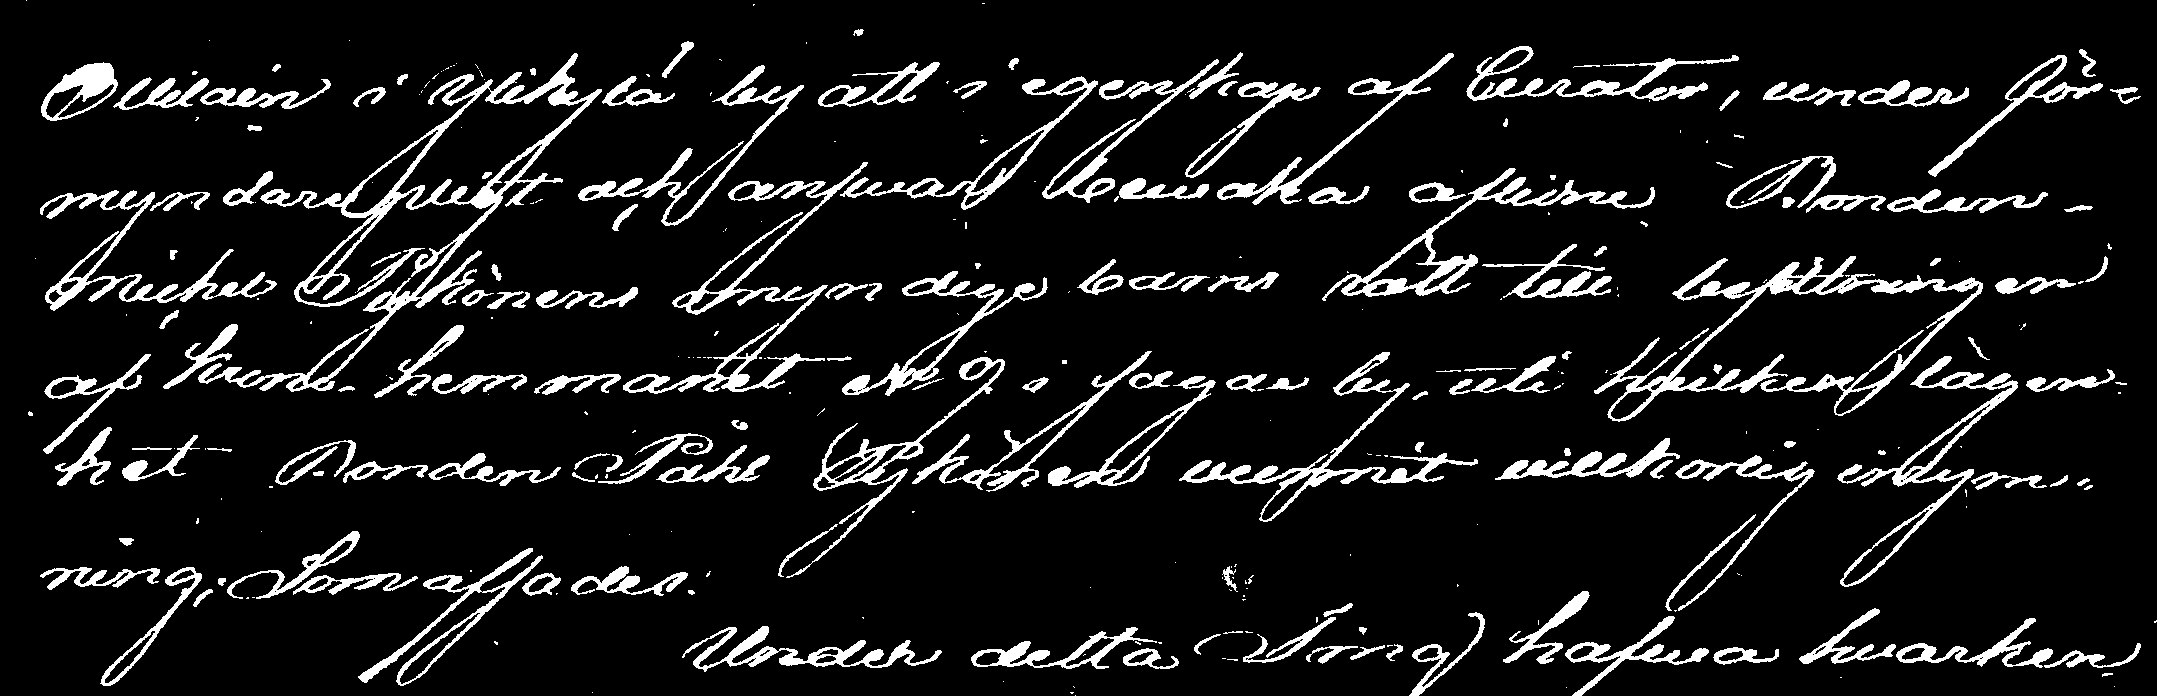 Ollilain i Ylikylä by att i egenskap af Curator, under för-
myndarepligt och answar bewaka aflidne Bonden
Michel Pykönens omyndige barns rätt till besittningen
af Krono-hemmanet No 9 i sagde by, uti hvilken lägen-
het Bonden Påhl Pykönen vunnit villkorlig inrym-
ning; Som afsades.
Under detta Ting hafwa hwarken